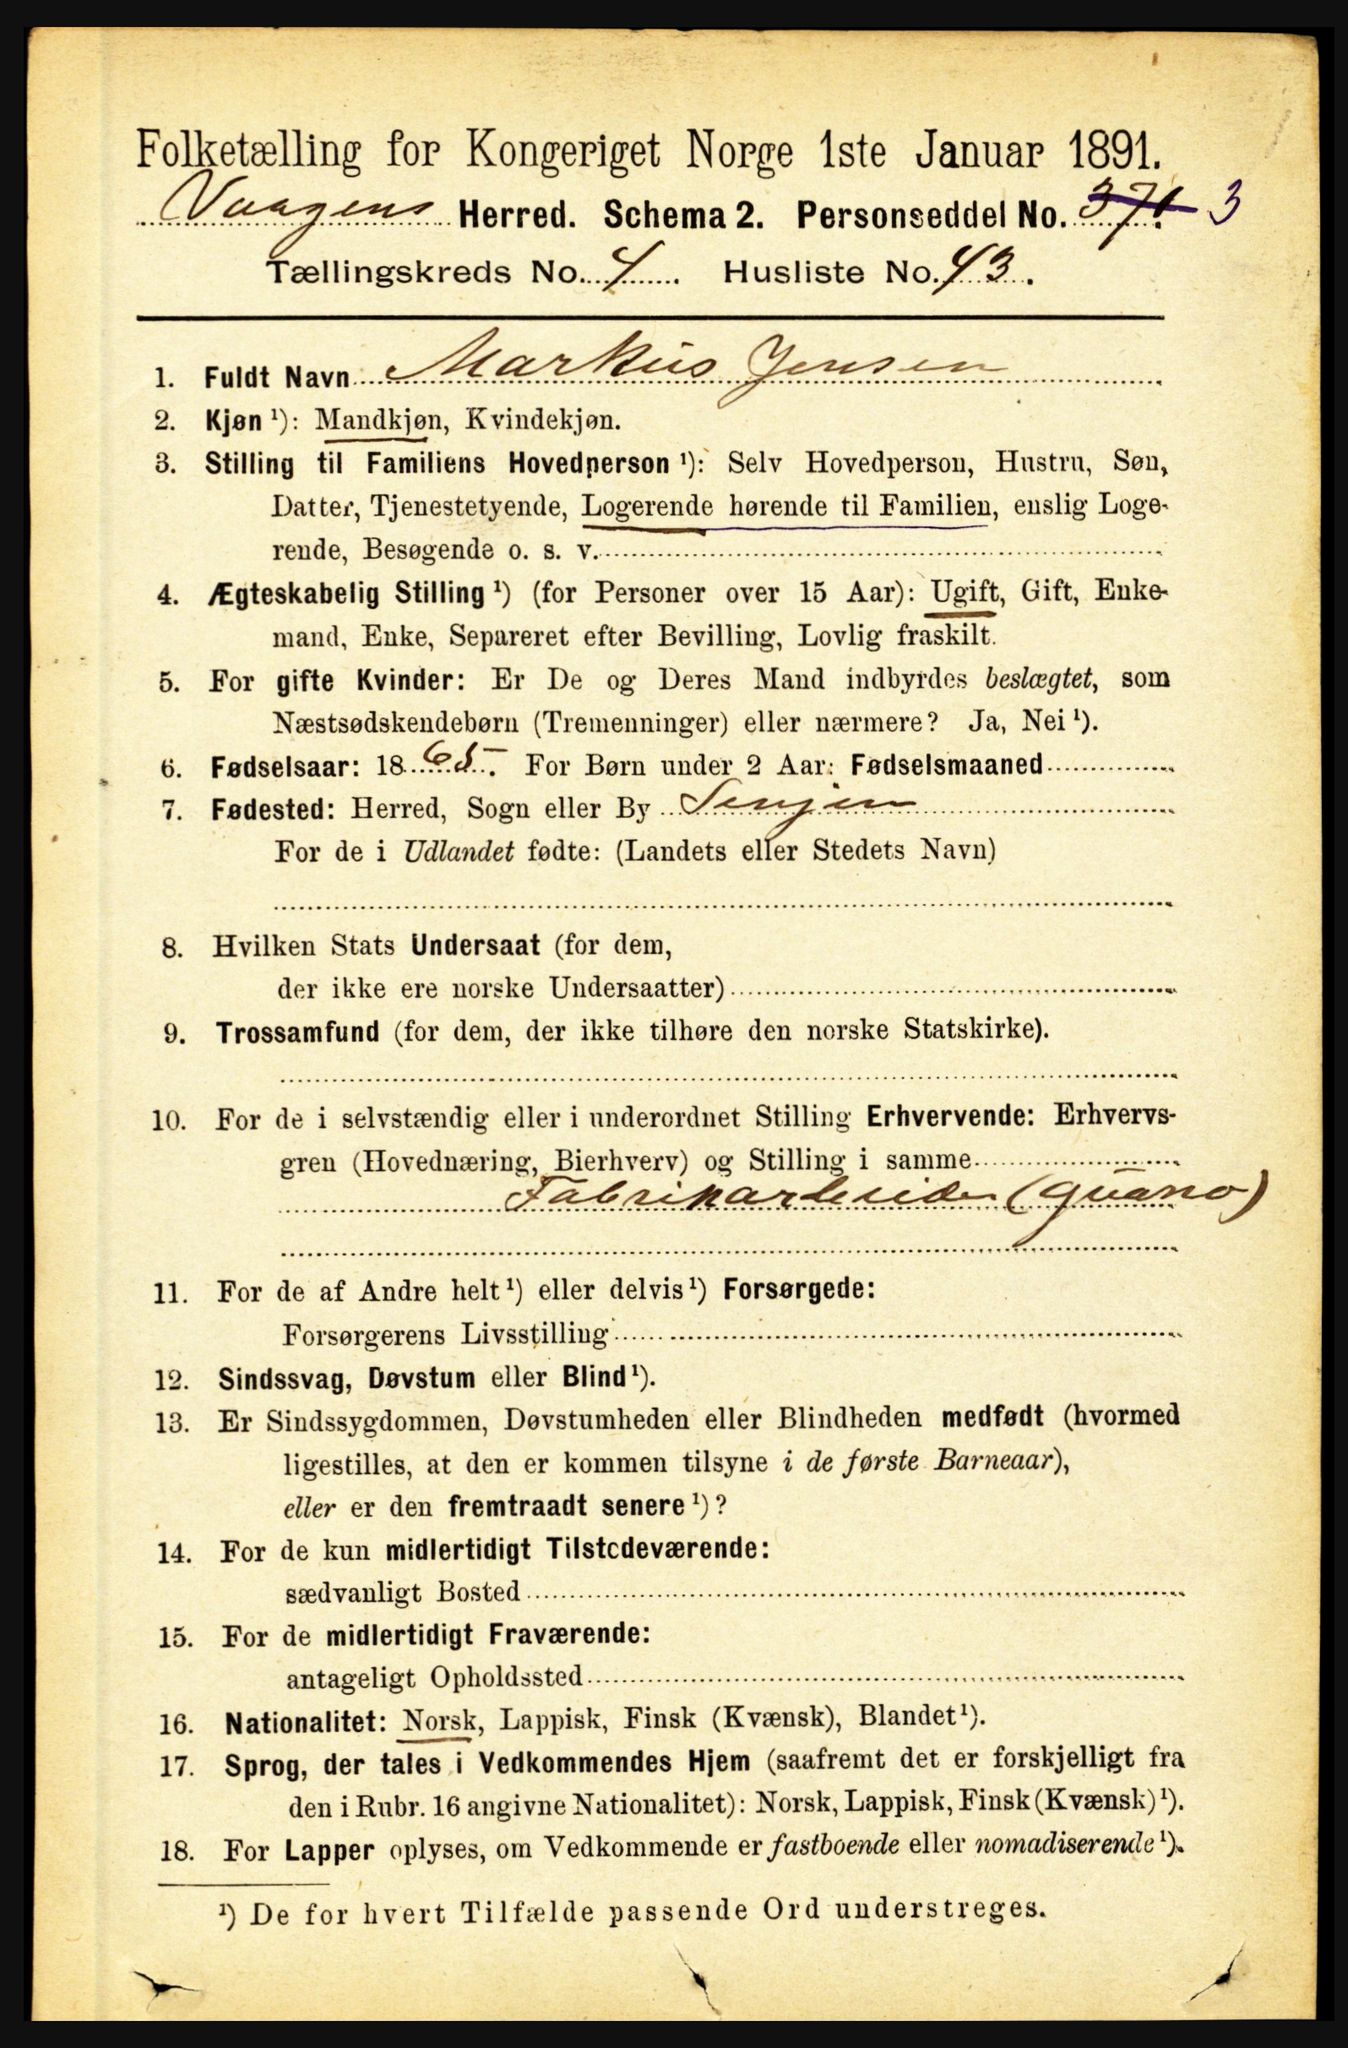 Folketælling for Kongeriget Norge 1ste Januar 1891.
Vaagens Herred. Schema 2. Personseddel No. 371. 3
Tællingskreds No. 4. Husliste No. 43.
1. Fuldt Navn Markus Jensen
2. Kjøn ¹): Mandkjøn, Kvindekjøn.
3. Stilling til Familiens Hovedperson ¹): Selv Hovedperson, Hustru, Søn,
Datter, Tjenestetyende, Logerende hørende til Familien, enslig Loge-
rende, Besøgende o. s. v.
4. Ægteskabelig Stilling ¹) (for Personer over 15 Aar): Ugift, Gift, Enke-
mand, Enke, Separeret efter Bevilling, Lovlig fraskilt.
5. For gifte Kvinder: Er De og Deres Mand indbyrdes beslægtet, som
Næstsødskendebørn (Tremenninger) eller nærmere? Ja, Nei ¹).
6. Fødselsaar: 1865. For Børn under 2 Aar: Fødselsmaaned
7. Fødested: Herred, Sogn eller By Senjen
For de i Udlandet fødte: (Landets eller Stedets Navn)
8. Hvilken Stats Undersaat (for dem,
der ikke ere norske Undersaatter)
9. Trossamfund (for dem, der ikke tilhøre den norske Statskirke).
10. For de i selvstændig eller i underordnet Stilling Erhvervende: Erhvervs-
gren (Hovednæring, Bierhverv) og Stilling i samme
Fabrikarbeider (guano)
11. For de af Andre helt ¹) eller delvis ¹) Forsørgede:
Forsørgerens Livsstilling
12. Sindssvag, Døvstum eller Blind ¹).
13. Er Sindssygdommen, Døvstumheden eller Blindheden medfødt (hvormed
ligestilles, at den er kommen tilsyne i de første Barneaar),
eller er den fremtraadt senere ¹)?
14. For de kun midlertidigt Tilstedeværende:
sædvanligt Bosted
15. For de midlertidigt Fraværende:
antageligt Opholdssted
16. Nationalitet: Norsk, Lappisk, Finsk (Kvænsk), Blandet ¹).
17. Sprog, der tales i Vedkommendes Hjem (saafremt det er forskjelligt fra
den i Rubr. 16 angivne Nationalitet): Norsk, Lappisk, Finsk (Kvænsk) ¹).
18. For Lapper oplyses, om Vedkommende er fastboende eller nomadiserende ¹).
¹) De for hvert Tilfælde passende Ord understreges.